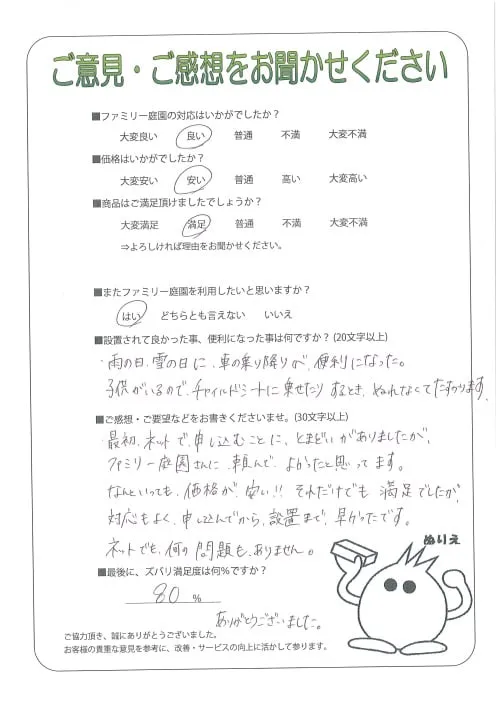 ご意見・ご感想をお聞かせください
■ファミリー庭園の対応はいかがでしたか？
大変良い 良い 普通 不満 大変不満
■価格はいかがでしたか？
大変安い 安い 普通 高い 大変高い
■商品はご満足頂けましたでしょうか？
大変満足 満足 普通 不満 大変不満
⇒よろしければ理由をお聞かせください。
■またファミリー庭園を利用したいと思いますか？
はい どちらとも言えない いいえ
■設置されて良かった事、便利になった事は何ですか？(20文字以上)
・雨の日、雪の日に、車の乗り降りが、便利になった。
子供がいるので、チャイルドシートに乗せたりするとき、ぬれなくてたすかります。
■ご感想・ご要望などをお書きくださいませ。(30文字以上)
最初、ネットで、申し込むことに、とまどいがありましたが、
ファミリー庭園さんに頼んで、よかったと思ってます。
なんといっても、価格が、安い!! それだけでも満足でしたが、
対応もよく、申し込んでから、設置まで、早かったです。
ネットでも、何の問題も、ありません。
ぬりえ
■最後に、ズバリ満足度は何%ですか？
80 %
ありがとうございました。
ご協力頂き、誠にありがとうございました。
お客様の貴重な意見を参考に、改善・サービスの向上に活かして参ります。